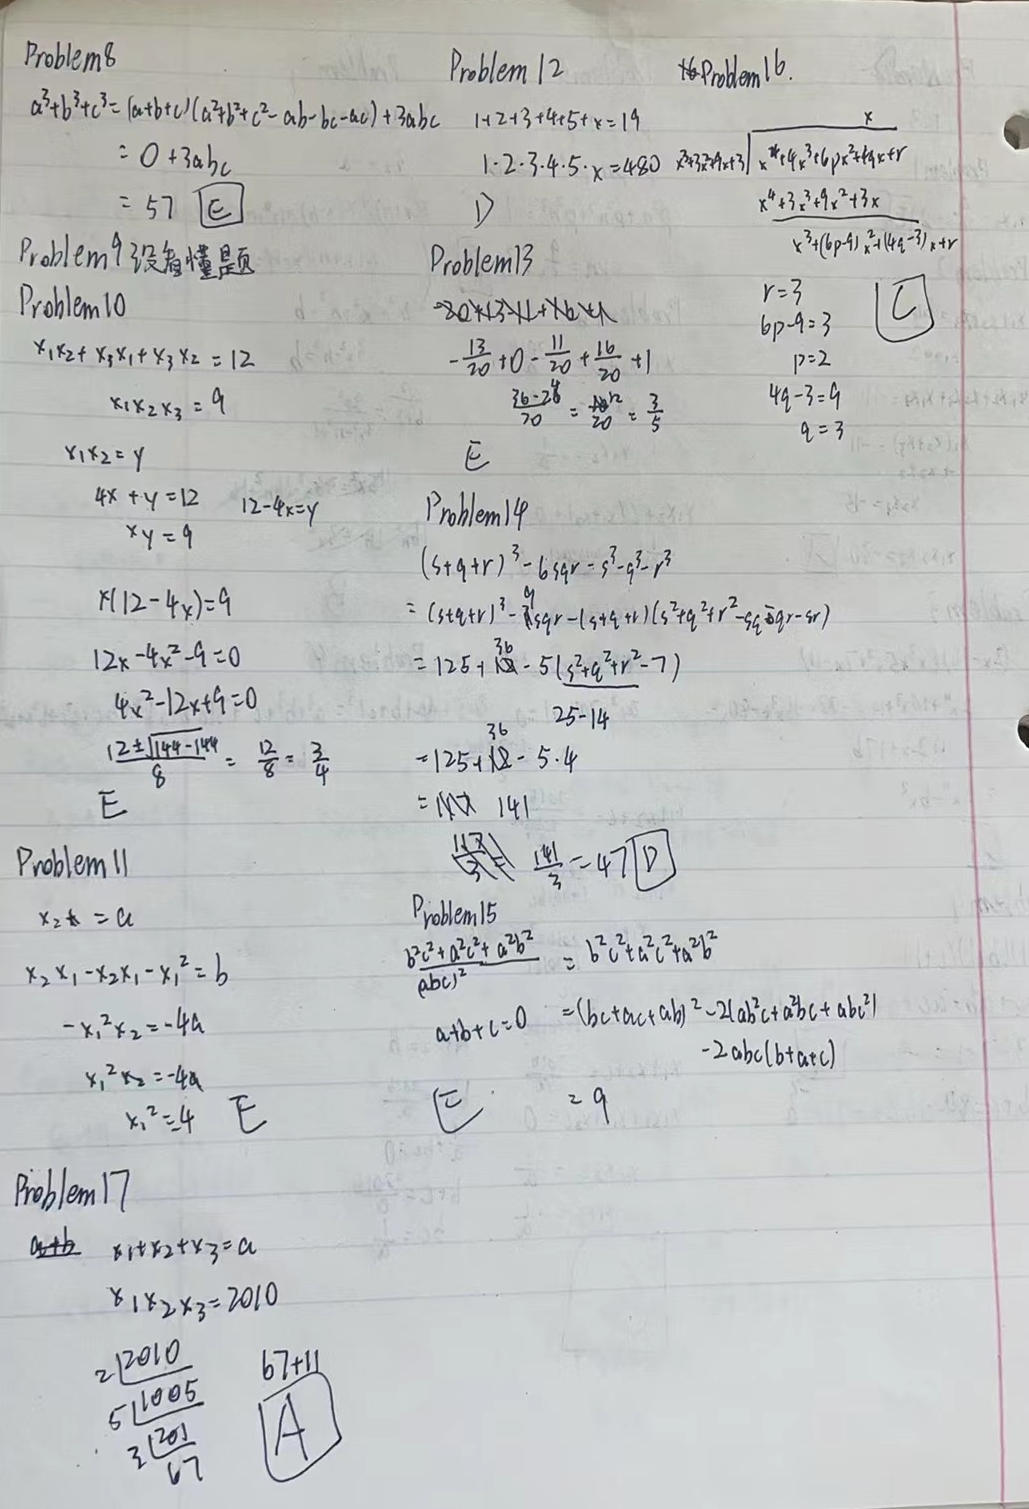 Problem8
a³+b³+c³=(a+b+c)(a²+b²+c²-ab-bc-ac)+3abc
=0+3abc
=57 E
Problem9 没看懂题
Problem10
x₁x₂+x₃x₁+x₃x₂=12
x₁x₂x₃=9
x₁x₂=y
4x+y=12 12-4x=y
xy=9
x(12-4x)=9
12x-4x²-9=0
4x²-12x+9=0
12±√144-144/8=12/8=3/4
E
Problem11
x₂=a
x₂x₁-x₂x₁-x₁²=b
-x₁²x₂=-4a
x₁²x₂=-4a
x₁²=4 E
Problem17
a+b x₁+x₂+x₃=a
x₁x₂x₃=2010
2|2010
5|1005 67+11
3|201 A
67
Problem12
1+2+3+4+5+x=19
1·2·3·4·5·x=480
D
Problem13
-13/20+0-11/20+16/20+1
=12/20=3/5
E
Problem14
(s+q+r)³-6sqr-s³-q³-r³
=(s+q+r)³-9sqr-(s+q+r)(s²+q²+r²-sq-qr-sr)
=125+36-5(s²+q²+r²-7)
25-14
=125+36-5·4
=141
141/3=47 D
Problem15
b²c²+a²c²+a²b²/(abc)²=b²c²+a²c²+a²b²
a+b+c=0 =(bc+ac+ab)²-2(ab²c+a²bc+abc²)
-2abc(b+a+c)
E =9
Problem16.
x
x³+3x²+9x+3 x⁴+4x³+6px²+4qx+r
x⁴+3x³+9x²+3x
x³+(6p-9)x²+(4q-3)x+r
r=3 C
6p-9=3
p=2
4q-3=9
q=3